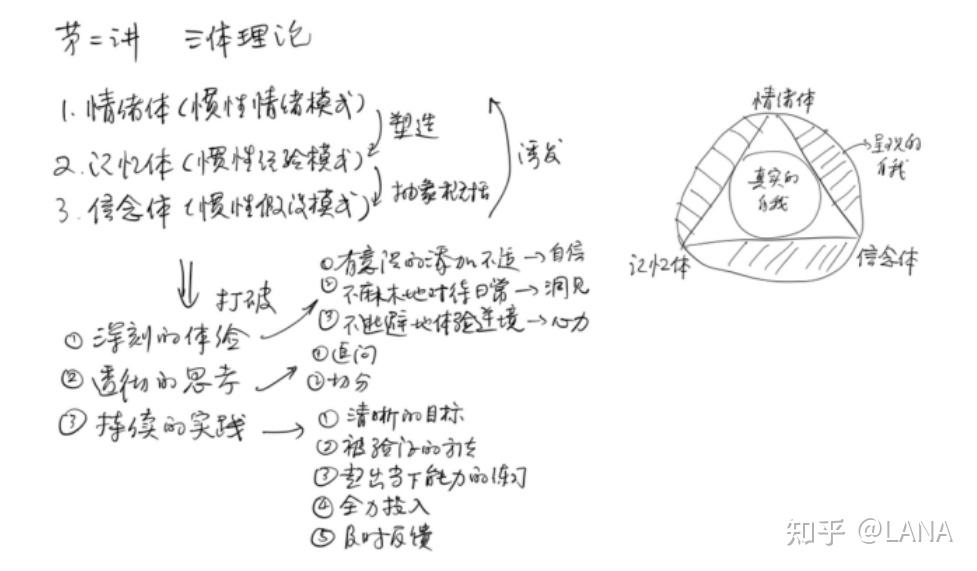 第二讲 三体理论
1. 情绪体（惯性情绪模式）
塑造
2. 记忆体（惯性经验模式）
抽象概括
3. 信念体（惯性假设模式）
诱发
打破
① 深刻的体验
① 有意识的添加不适→自信
② 不麻木地对待日常→洞见
③ 不逃避地体验逆境→心力
② 透彻的思考
① 追问
② 切分
③ 持续的实践
① 清晰的目标
② 被验证的方法
③ 超出当下能力的练习
④ 全力投入
⑤ 及时反馈
情绪体
呈现的
自我
真实的
自我
记忆体
信念体
知乎 @LANA